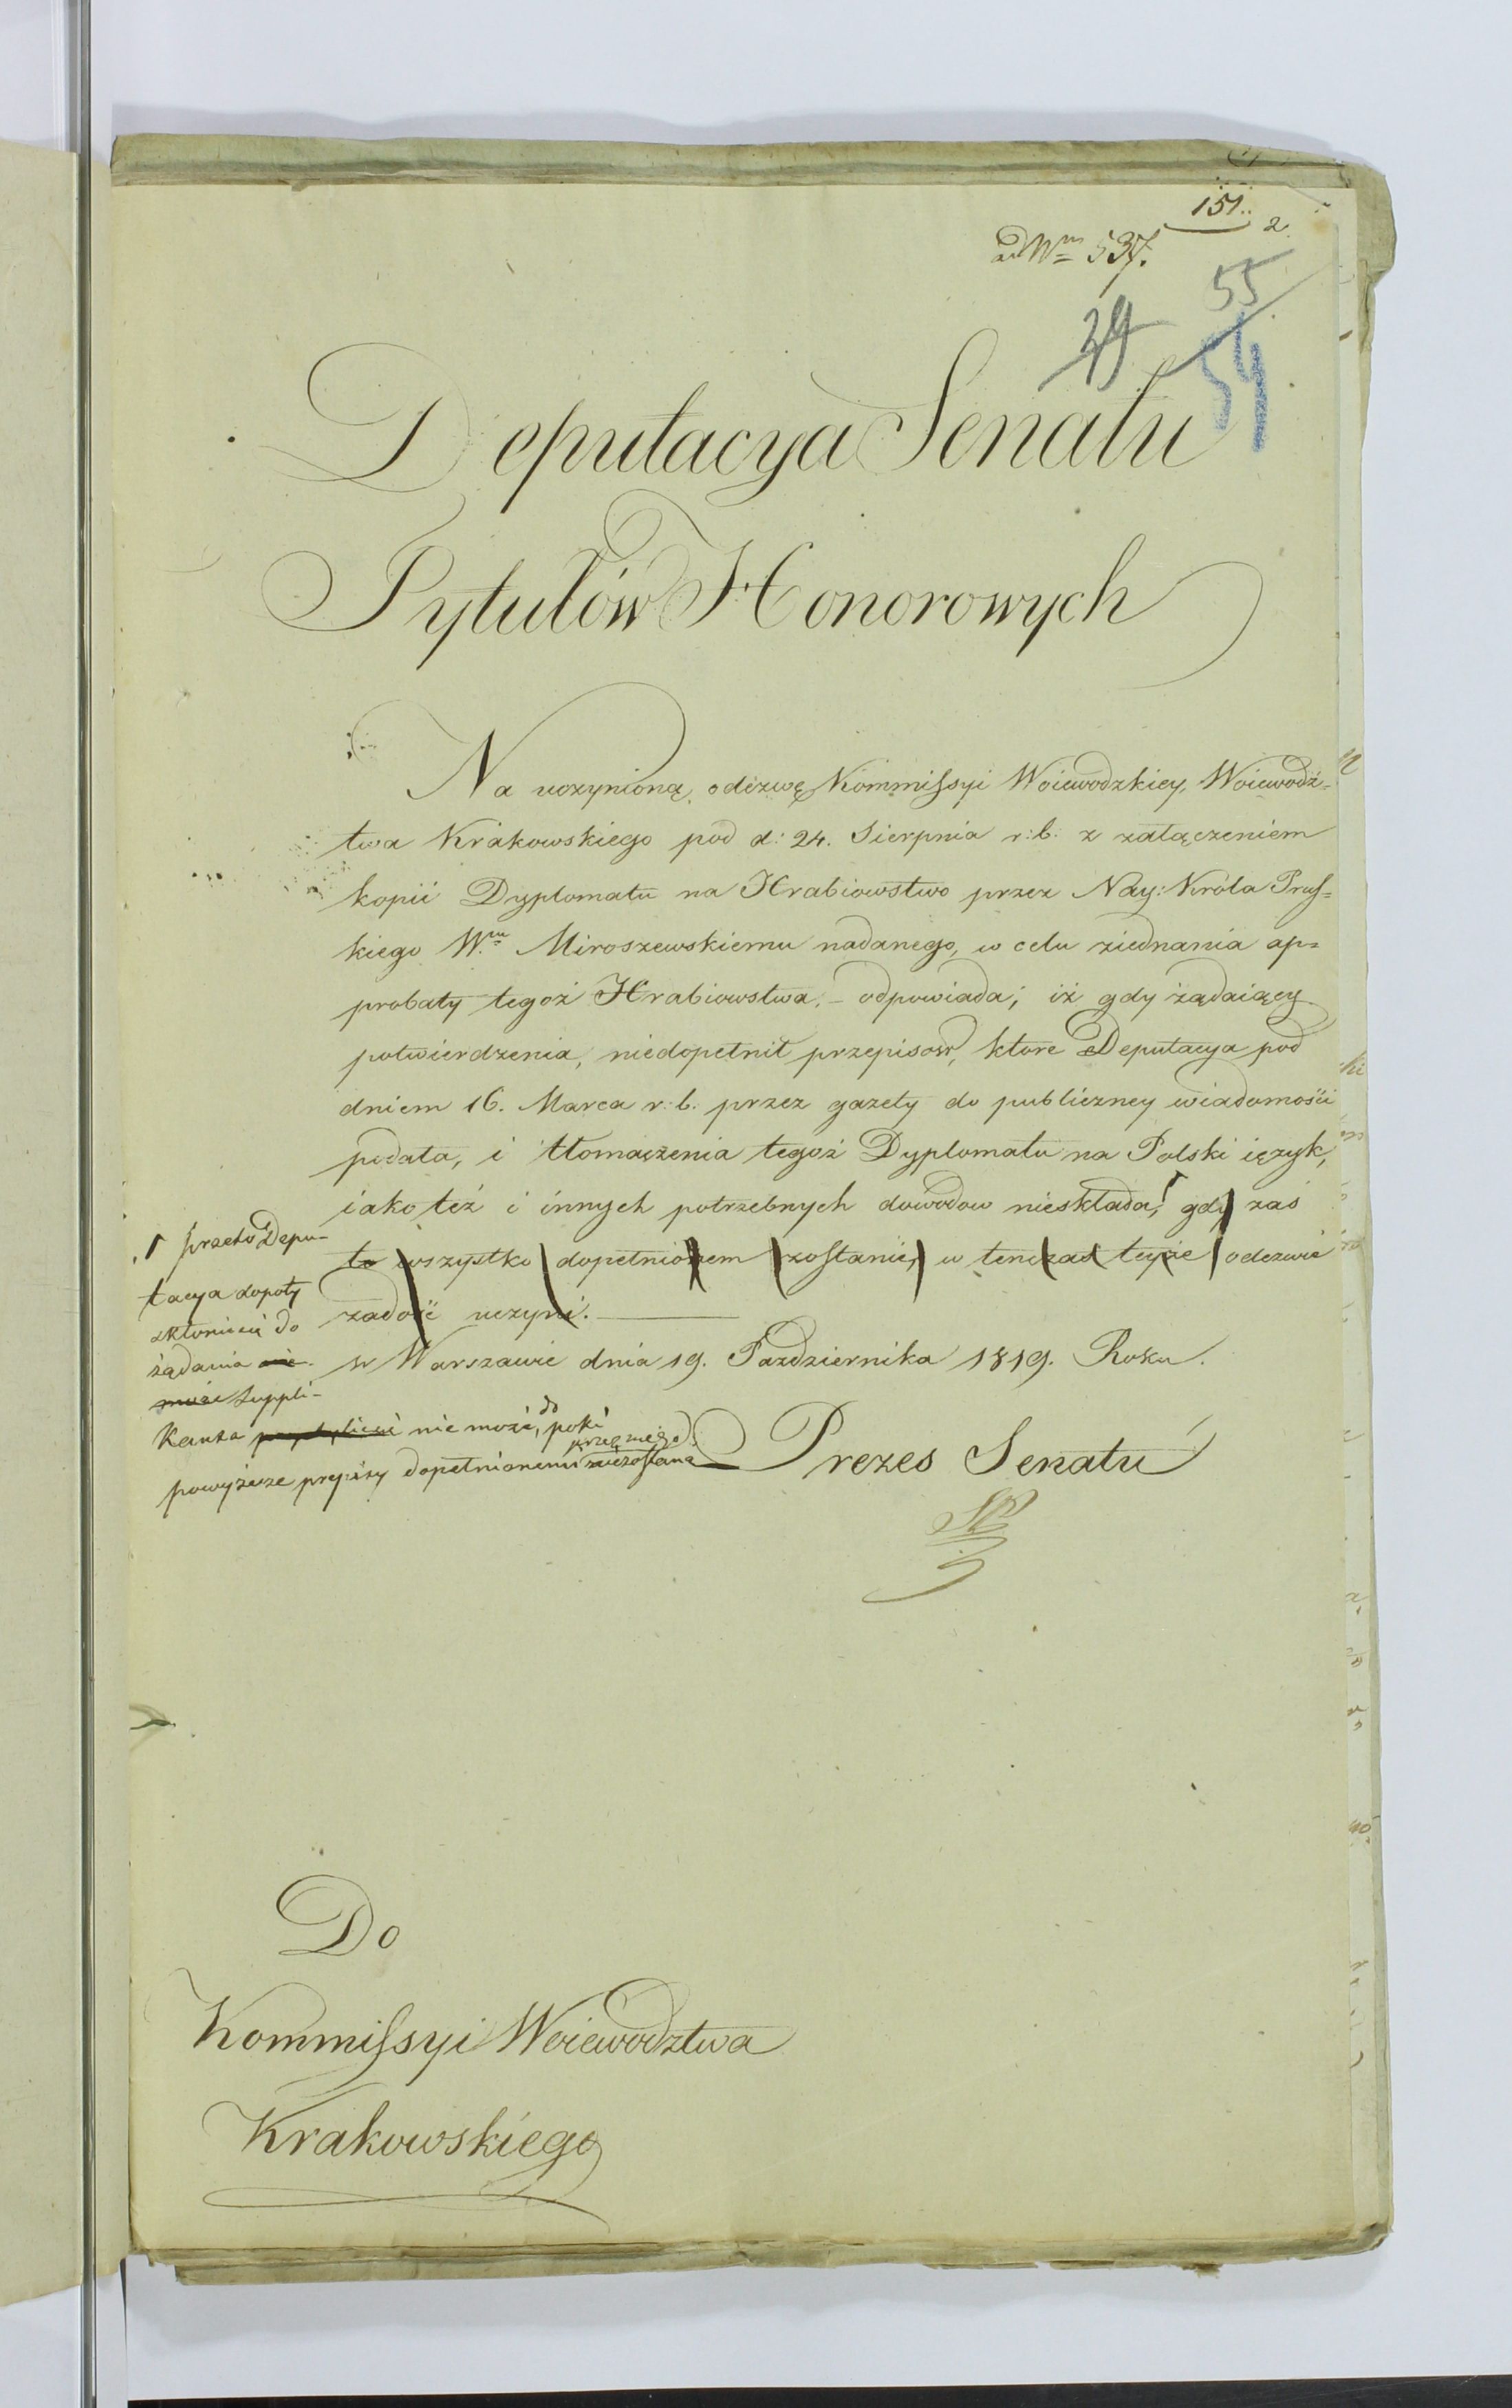 151.. 2.
ad Nrm 537.
29 55
54
Deputacya Senatu
Tytułów Honorowych
Na uczynioną odezwę Kommissyi Woiewodzkiey, Woiewodz=
twa Krakowskiego pod d: 24. Sierpnia r: b: z załączeniem
kopii Dyplomatu na Hrabiowstwo przez Nay: Króla Prus=
kiego Wmu Miroszewskiemu nadanego, w celu ziednania ap=
probaty tegoż Hrabiowstwa. – odpowiada; iż gdy żądaiący
potwierdzenia, niedopełnił przepisow, które Deputacya pod
dniem 16. Marca r: b. przez gazety do publiczney wiadomości
podała, i tłomaczenia tegoż Dyplomatu na Polski ięzyk,
iako też i innych potrzebnych dowodow nieskłada, gdy zaś
to wszystko dopełnionem zostanie, w tenczas teyże odezwie
zadość uczyni.
przeto Depu-
tacya dopoty
skłonić się do
żądania nie
może Suppli-
kanta nie może, do poki
powyższe przepisy dopełnionemi przez niego niezostaną
w Warszawie dnia 19. Pazdziernika 1819. Roku.
Prezes Senatu
Do
Kommissyi Woiewodztwa
Krakowskiego